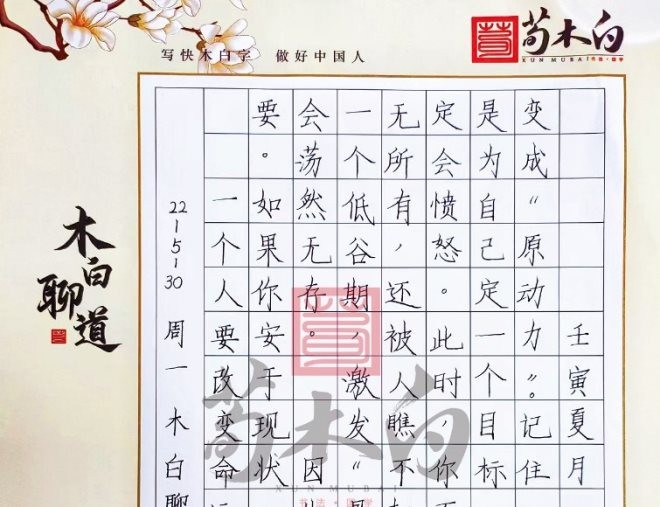 写快木白字 做好中国人
荀木白
XUN MUBAI
书法·国学
木白聊道
22-5-30 周一木白聊
一个人要改变命运
要。如果你安于现状
会荡然无存。 因
一个低谷期，激发“
无所有，还被人瞧不
定会愤怒。此时，你
是为自己定一个目标
变成“原动力”。记住
壬寅夏月
荀木白
XUN MUBAI